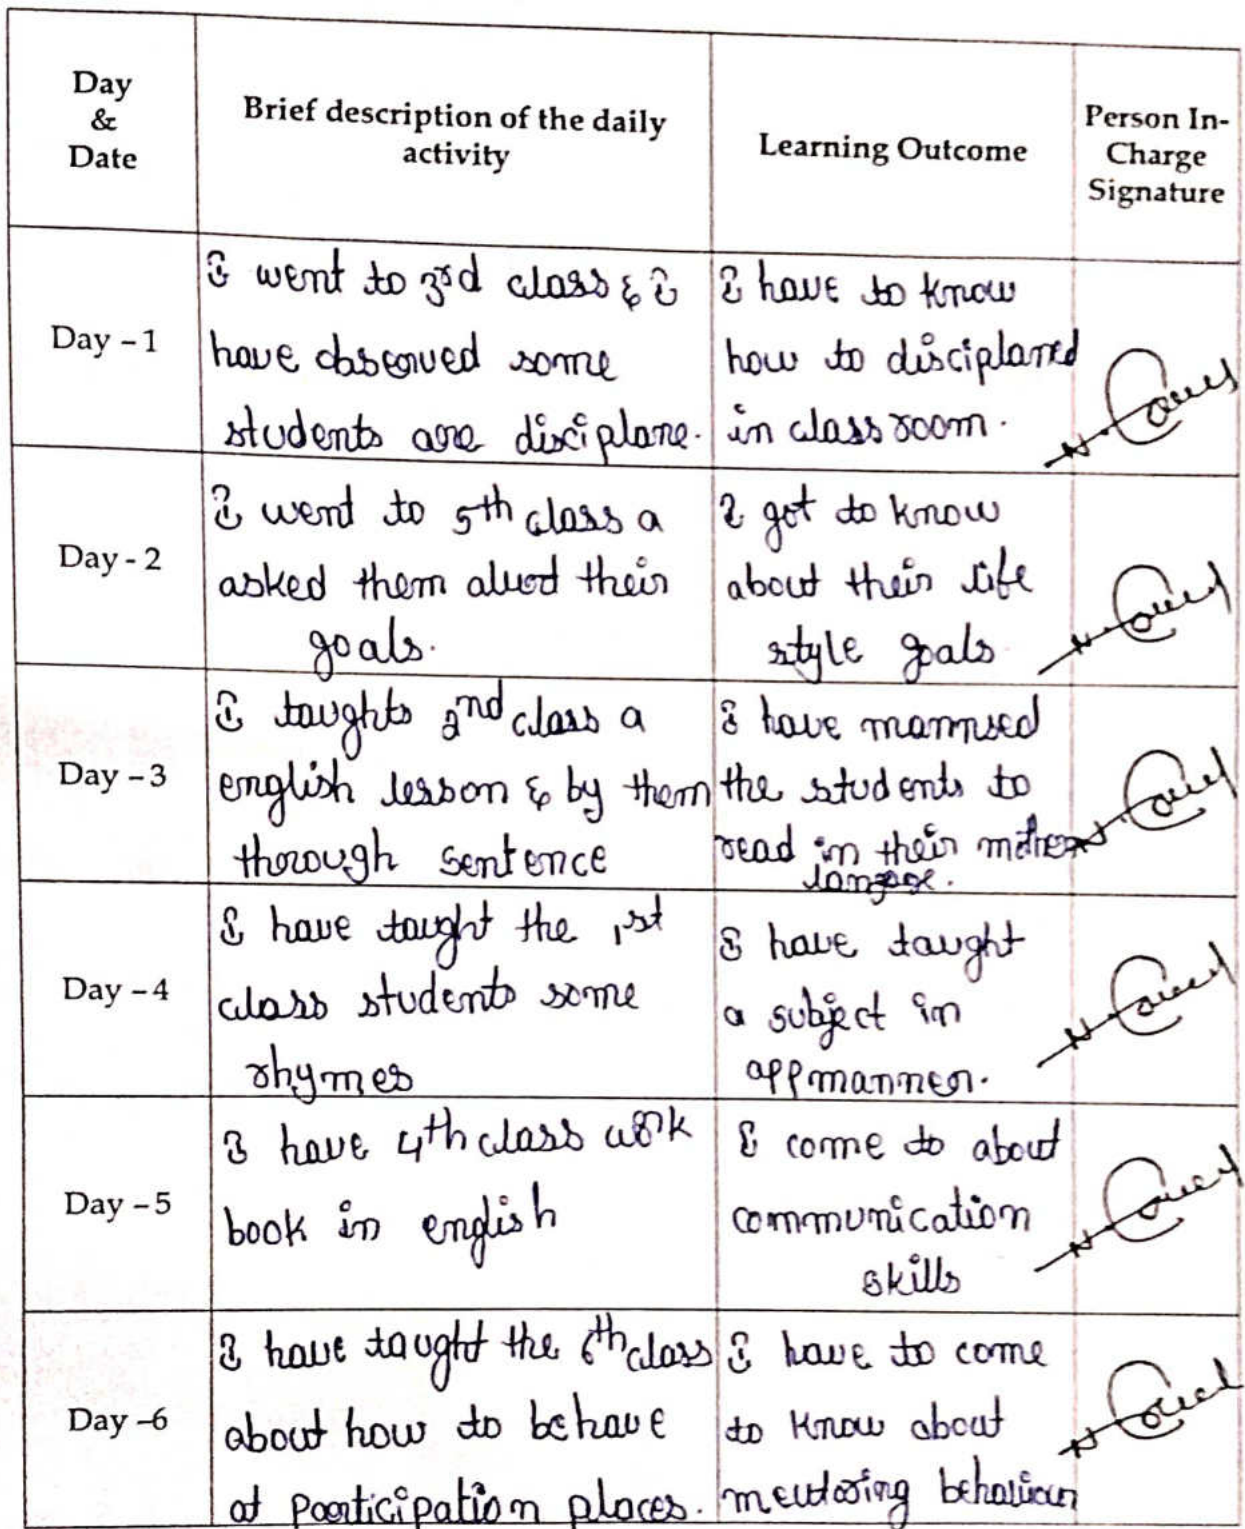 Day
&
Date
Brief description of the daily
activity
Learning Outcome
Person In-
Charge
Signature
Day - 1
I went to 3rd class & I
have observed some
students are disciplane.
I have to know
how to disciplaned
in class room.
Day - 2
I went to 5th class a
asked them about their
goals.
I got to know
about their life
style goals
Day - 3
I taughts 2nd class a
english lesson & by them
thorough sentence
I have
the students to
read in their mother
Day - 4
I have taught the 1st
class students some
rhymes
I have taught
a subject in
app manner.
Day - 5
I have 4th class work
book in english
I come to about
communication
skills
Day - 6
I have taught the 6th class
about how to behave
at participation places.
I have to come
to know about
behaviour